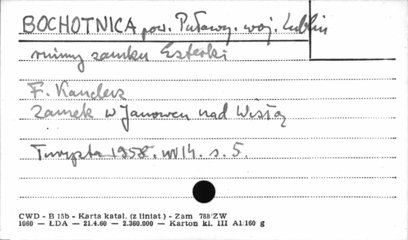 BOCHOTNICA pow. Puławy. woj. Lublin
ruiny zamku Esterki
F. Kanclerz
Zamek w Janowcu nad Wisłą
Turysta 1958. nr 14. s. 5.
CWD - B 15b - Karta katal. (z liniat.) - Zam 788/ZW
1060 — ŁDA — 21.4.60 — 2.360.000 — Karton kl. III A1/160 g